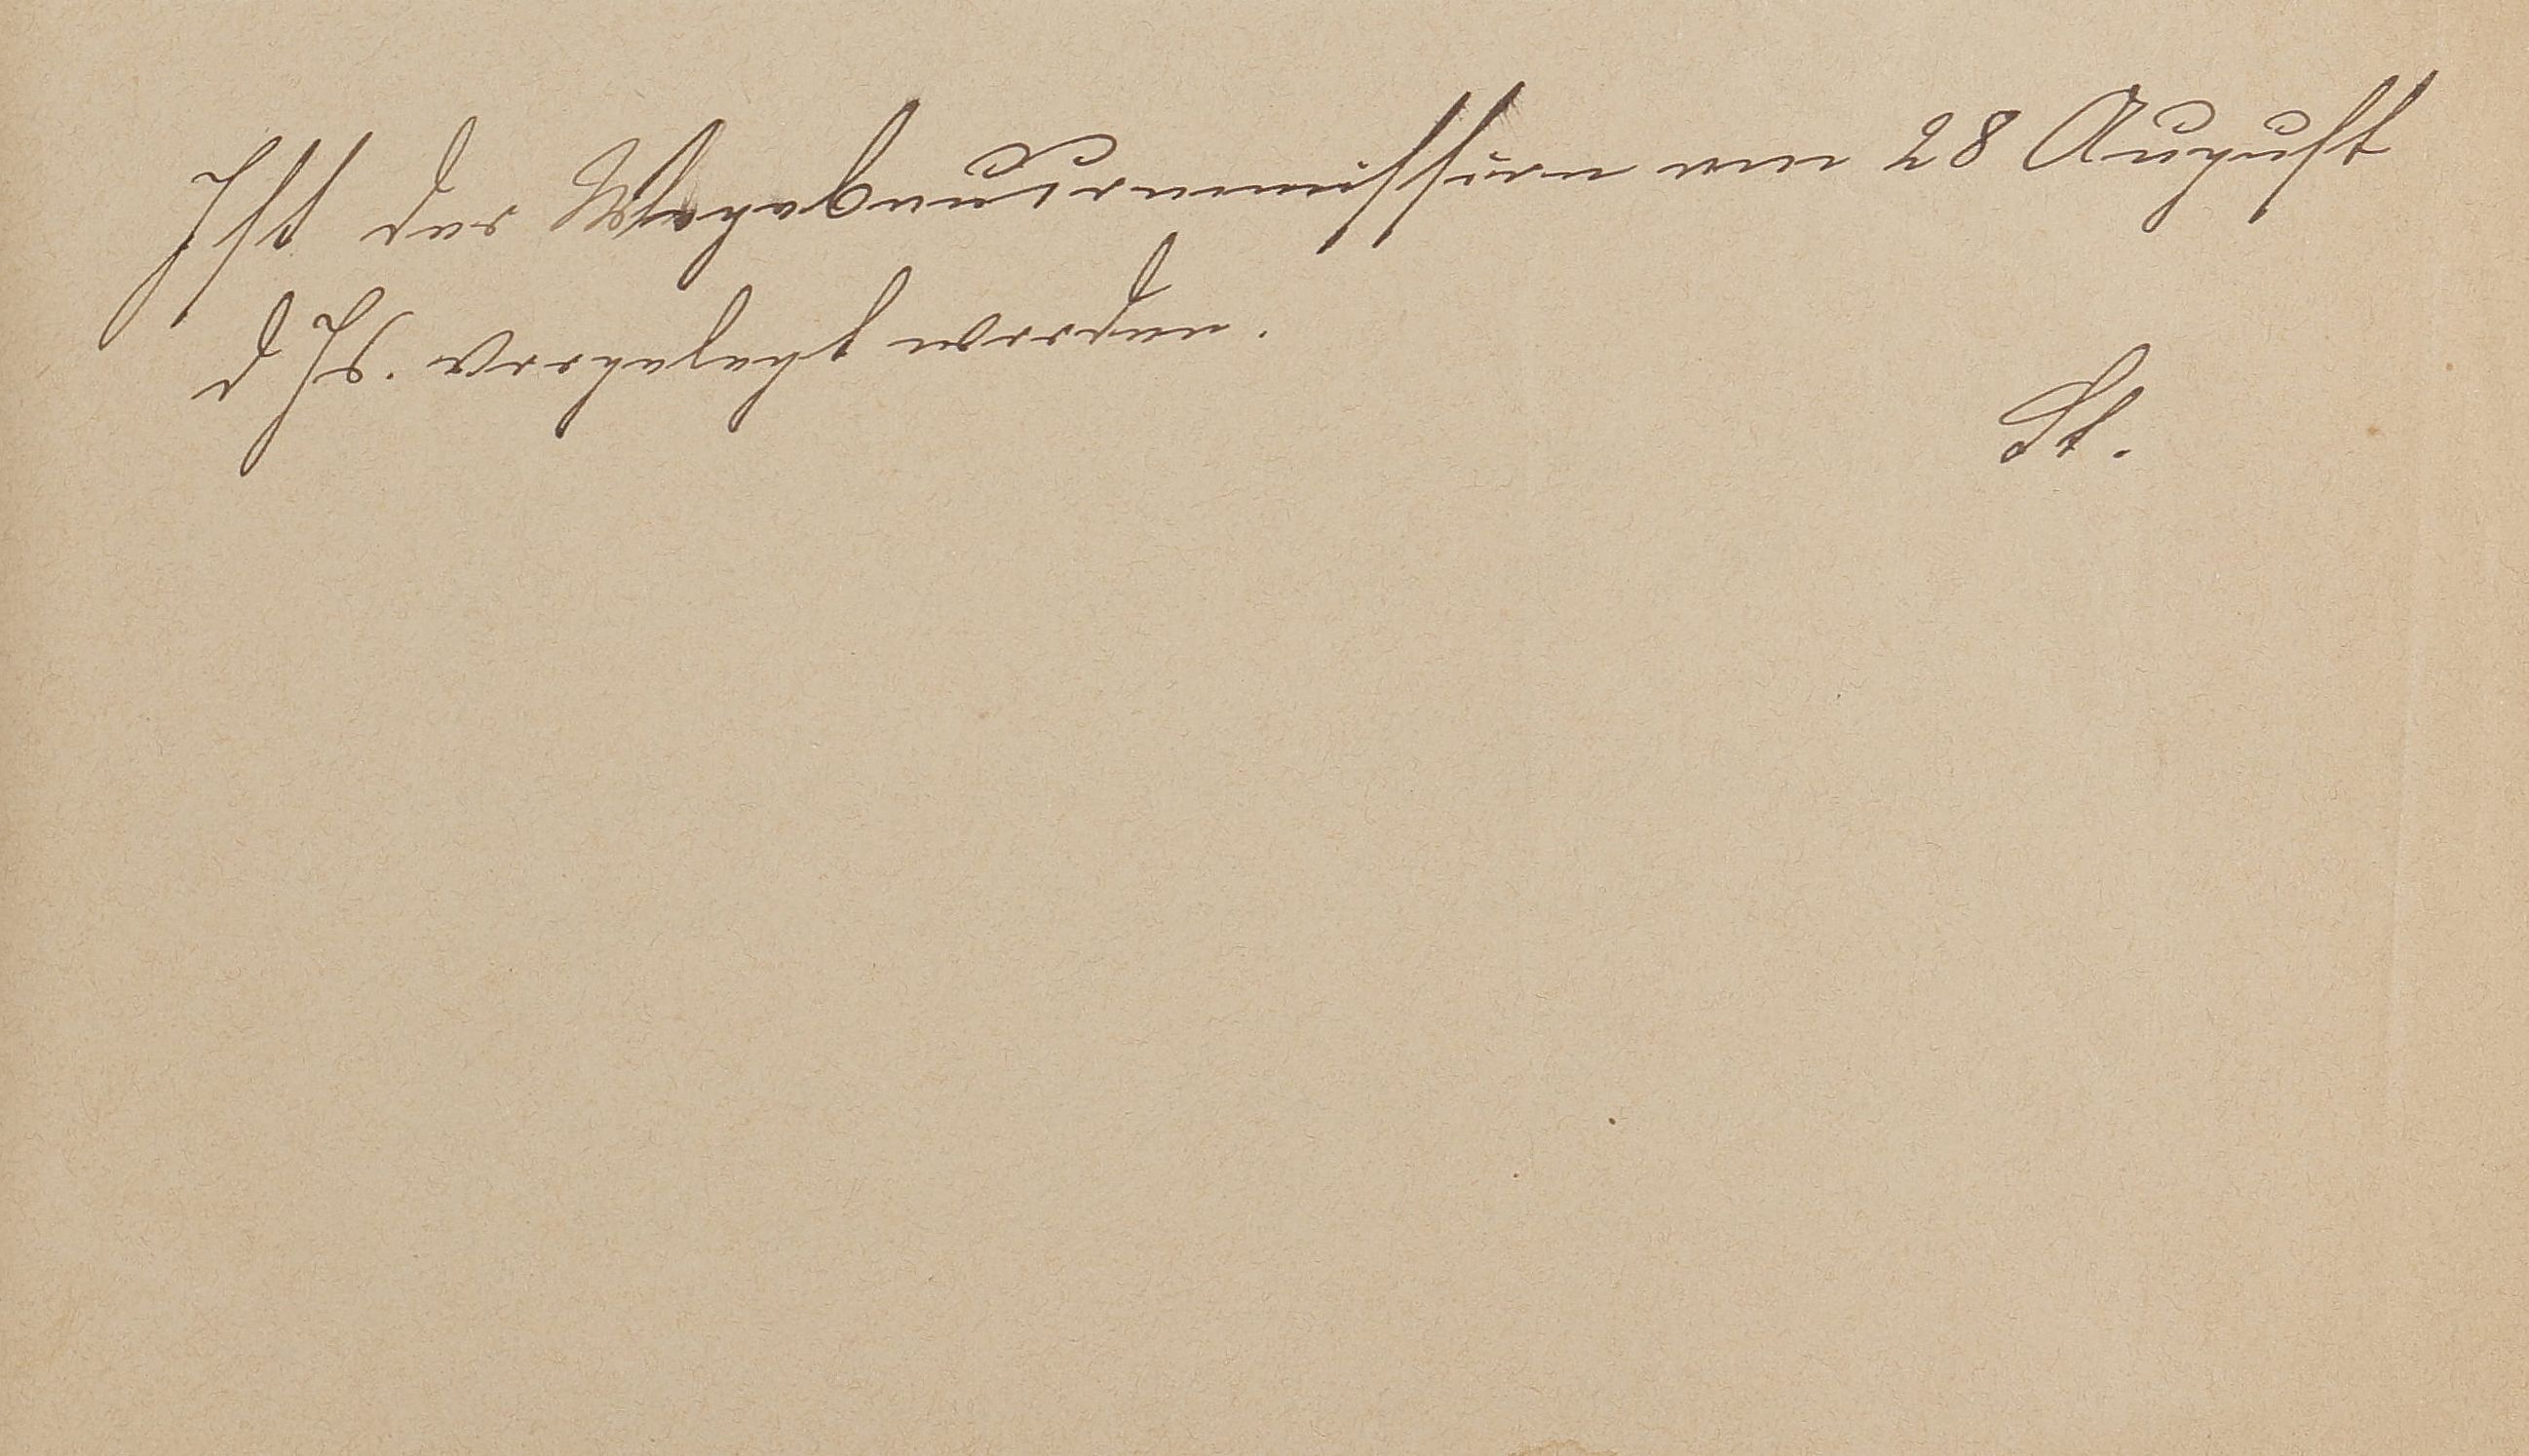 Ist der Wegebaucommission am 28 August
d Js. vorgelegt worden.
St.